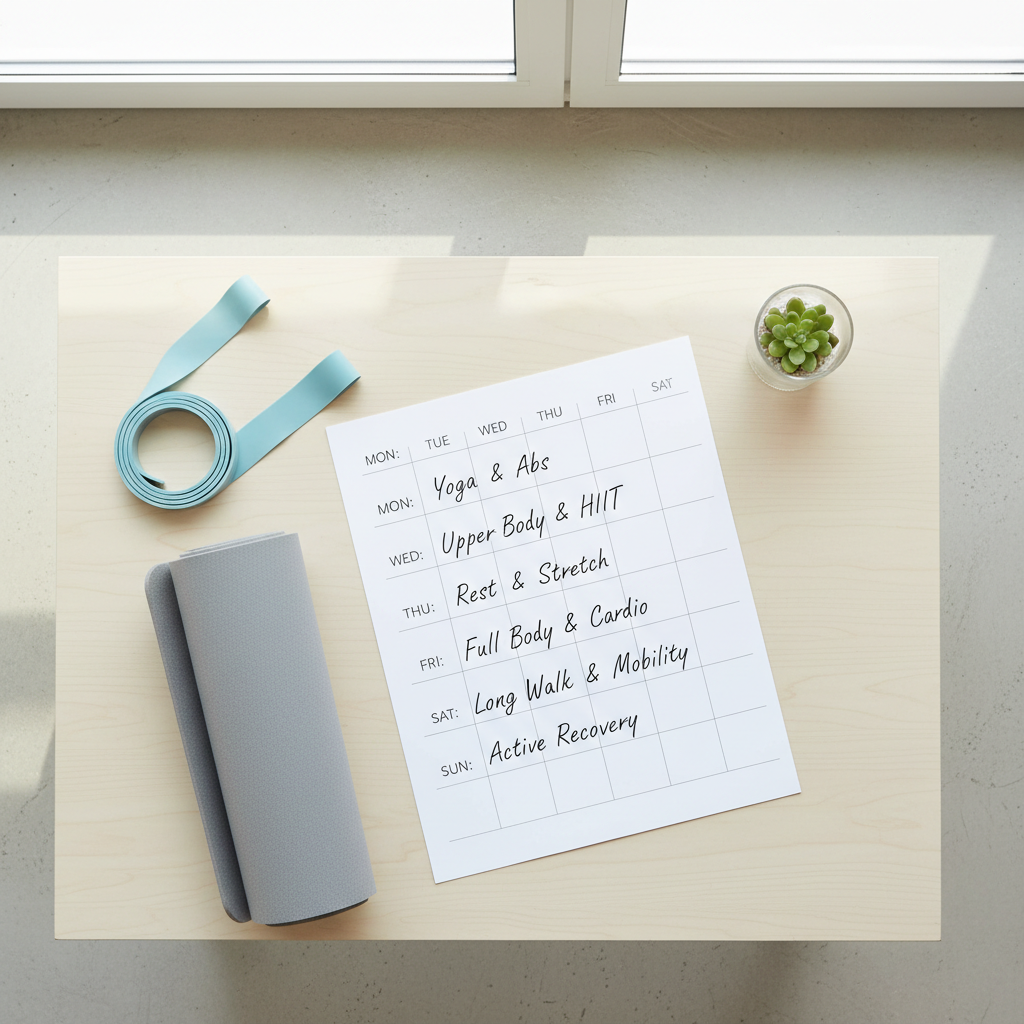 MON: TUE WED THU FRI SAT
MON: Yoga & Abs
WED: Upper Body & HIIT
THU: Rest & Stretch
FRI: Full Body & Cardio
SAT: Long Walk & Mobility
SUN: Active Recovery